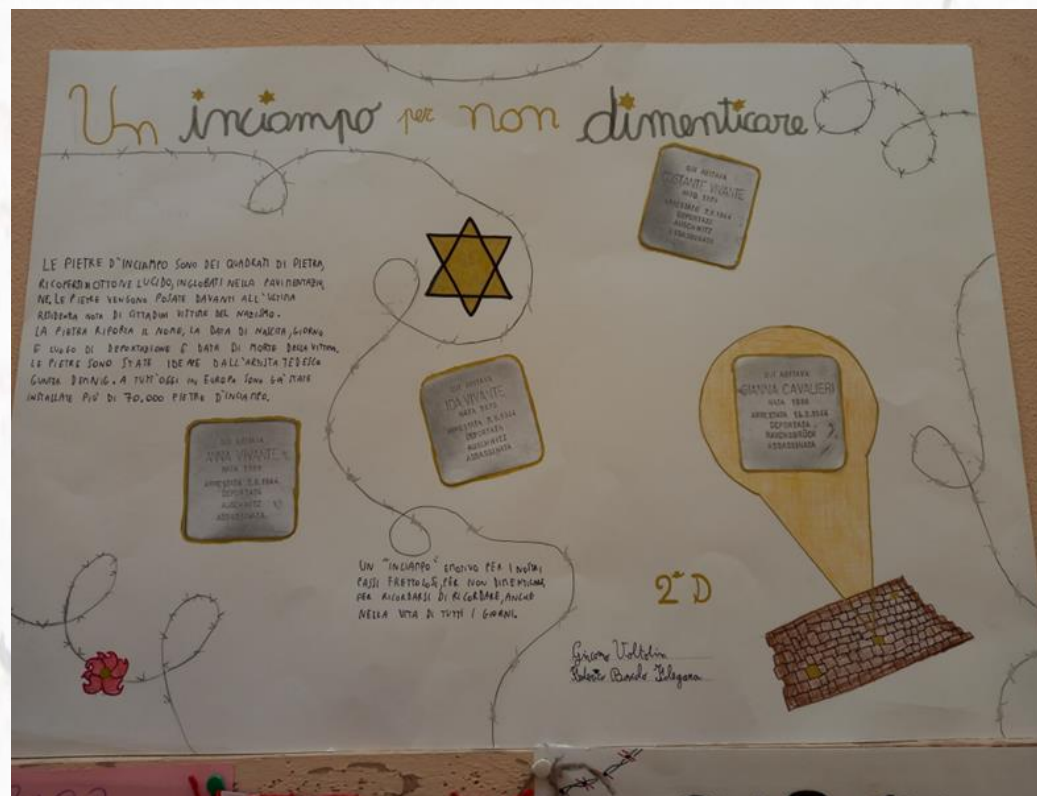 Un inciampo per non dimenticare
LE PIETRE D'INCIAMPO SONO DEI QUADRATI DI PIETRA,
RICOPERTI IN OTTONE LUCIDO, INGLOBATI NELLA PAVIMENTAZIO
NE, LE PIETRE VENGONO POSATE DAVANTI ALL'ULTIMA
RESIDENZA NOTA DI CITTADINI VITTIME DEL NAZISMO.
LA PIETRA RIPORTA IL NOME, LA DATA DI NASCITA, GIORNO
E LUOGO DI DEPORTAZIONE E DATA DI MORTE DELLA VITTIMA.
LE PIETRE SONO STATE IDEATE DALL'ARTISTA TEDESCO
DEMNIG. A TUTT'OGGI IN EUROPA SONO GIÀ STATE
INSTALLATE PIÙ DI 70.000 PIETRE D'INCIAMPO.
QUI ABITAVA
COSTANTE VIVANTE
NATO
ARRESTATO 1944
DEPORTATO
AUSCHWITZ
ASSASSINATO
QUI ABITAVA
IDA VIVANTE
NATA
ARRESTATA 1944
DEPORTATA
AUSCHWITZ
ASSASSINATA
QUI ABITAVA
GIANNA CAVALIERI
NATA
ARRESTATA 1944
DEPORTATA
RAVENSBRÜCK
ASSASSINATA
QUI ABITAVA
ANNA VIVANTE
NATA
ARRESTATA 1944
DEPORTATA
AUSCHWITZ
ASSASSINATA
UN "INCIAMPO" EMOTIVO PER I NOSTRI
PASSI FRETTOLOSI, PER NON DIMENTICARE,
PER RICORDARSI DI RICORDARE, ANCHE
NELLA VITA DI TUTTI I GIORNI.
2ª D
Giacomo Voltolin
Boscolo